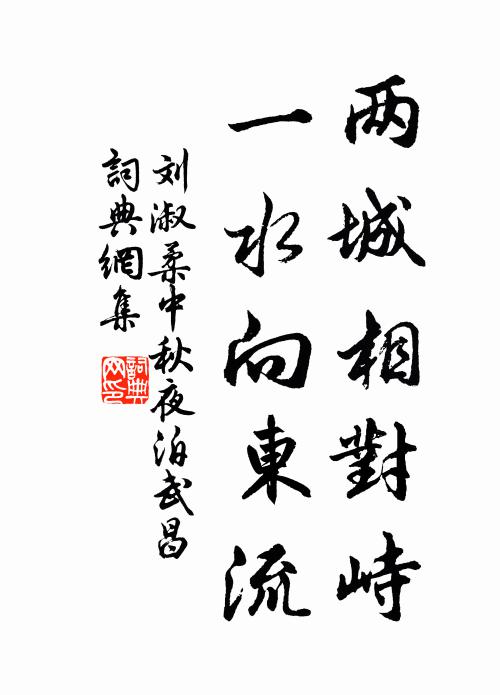 两城相對峙
一水向東流
刘淑柔中秋夜泊武昌
詞典網集
詞典網印